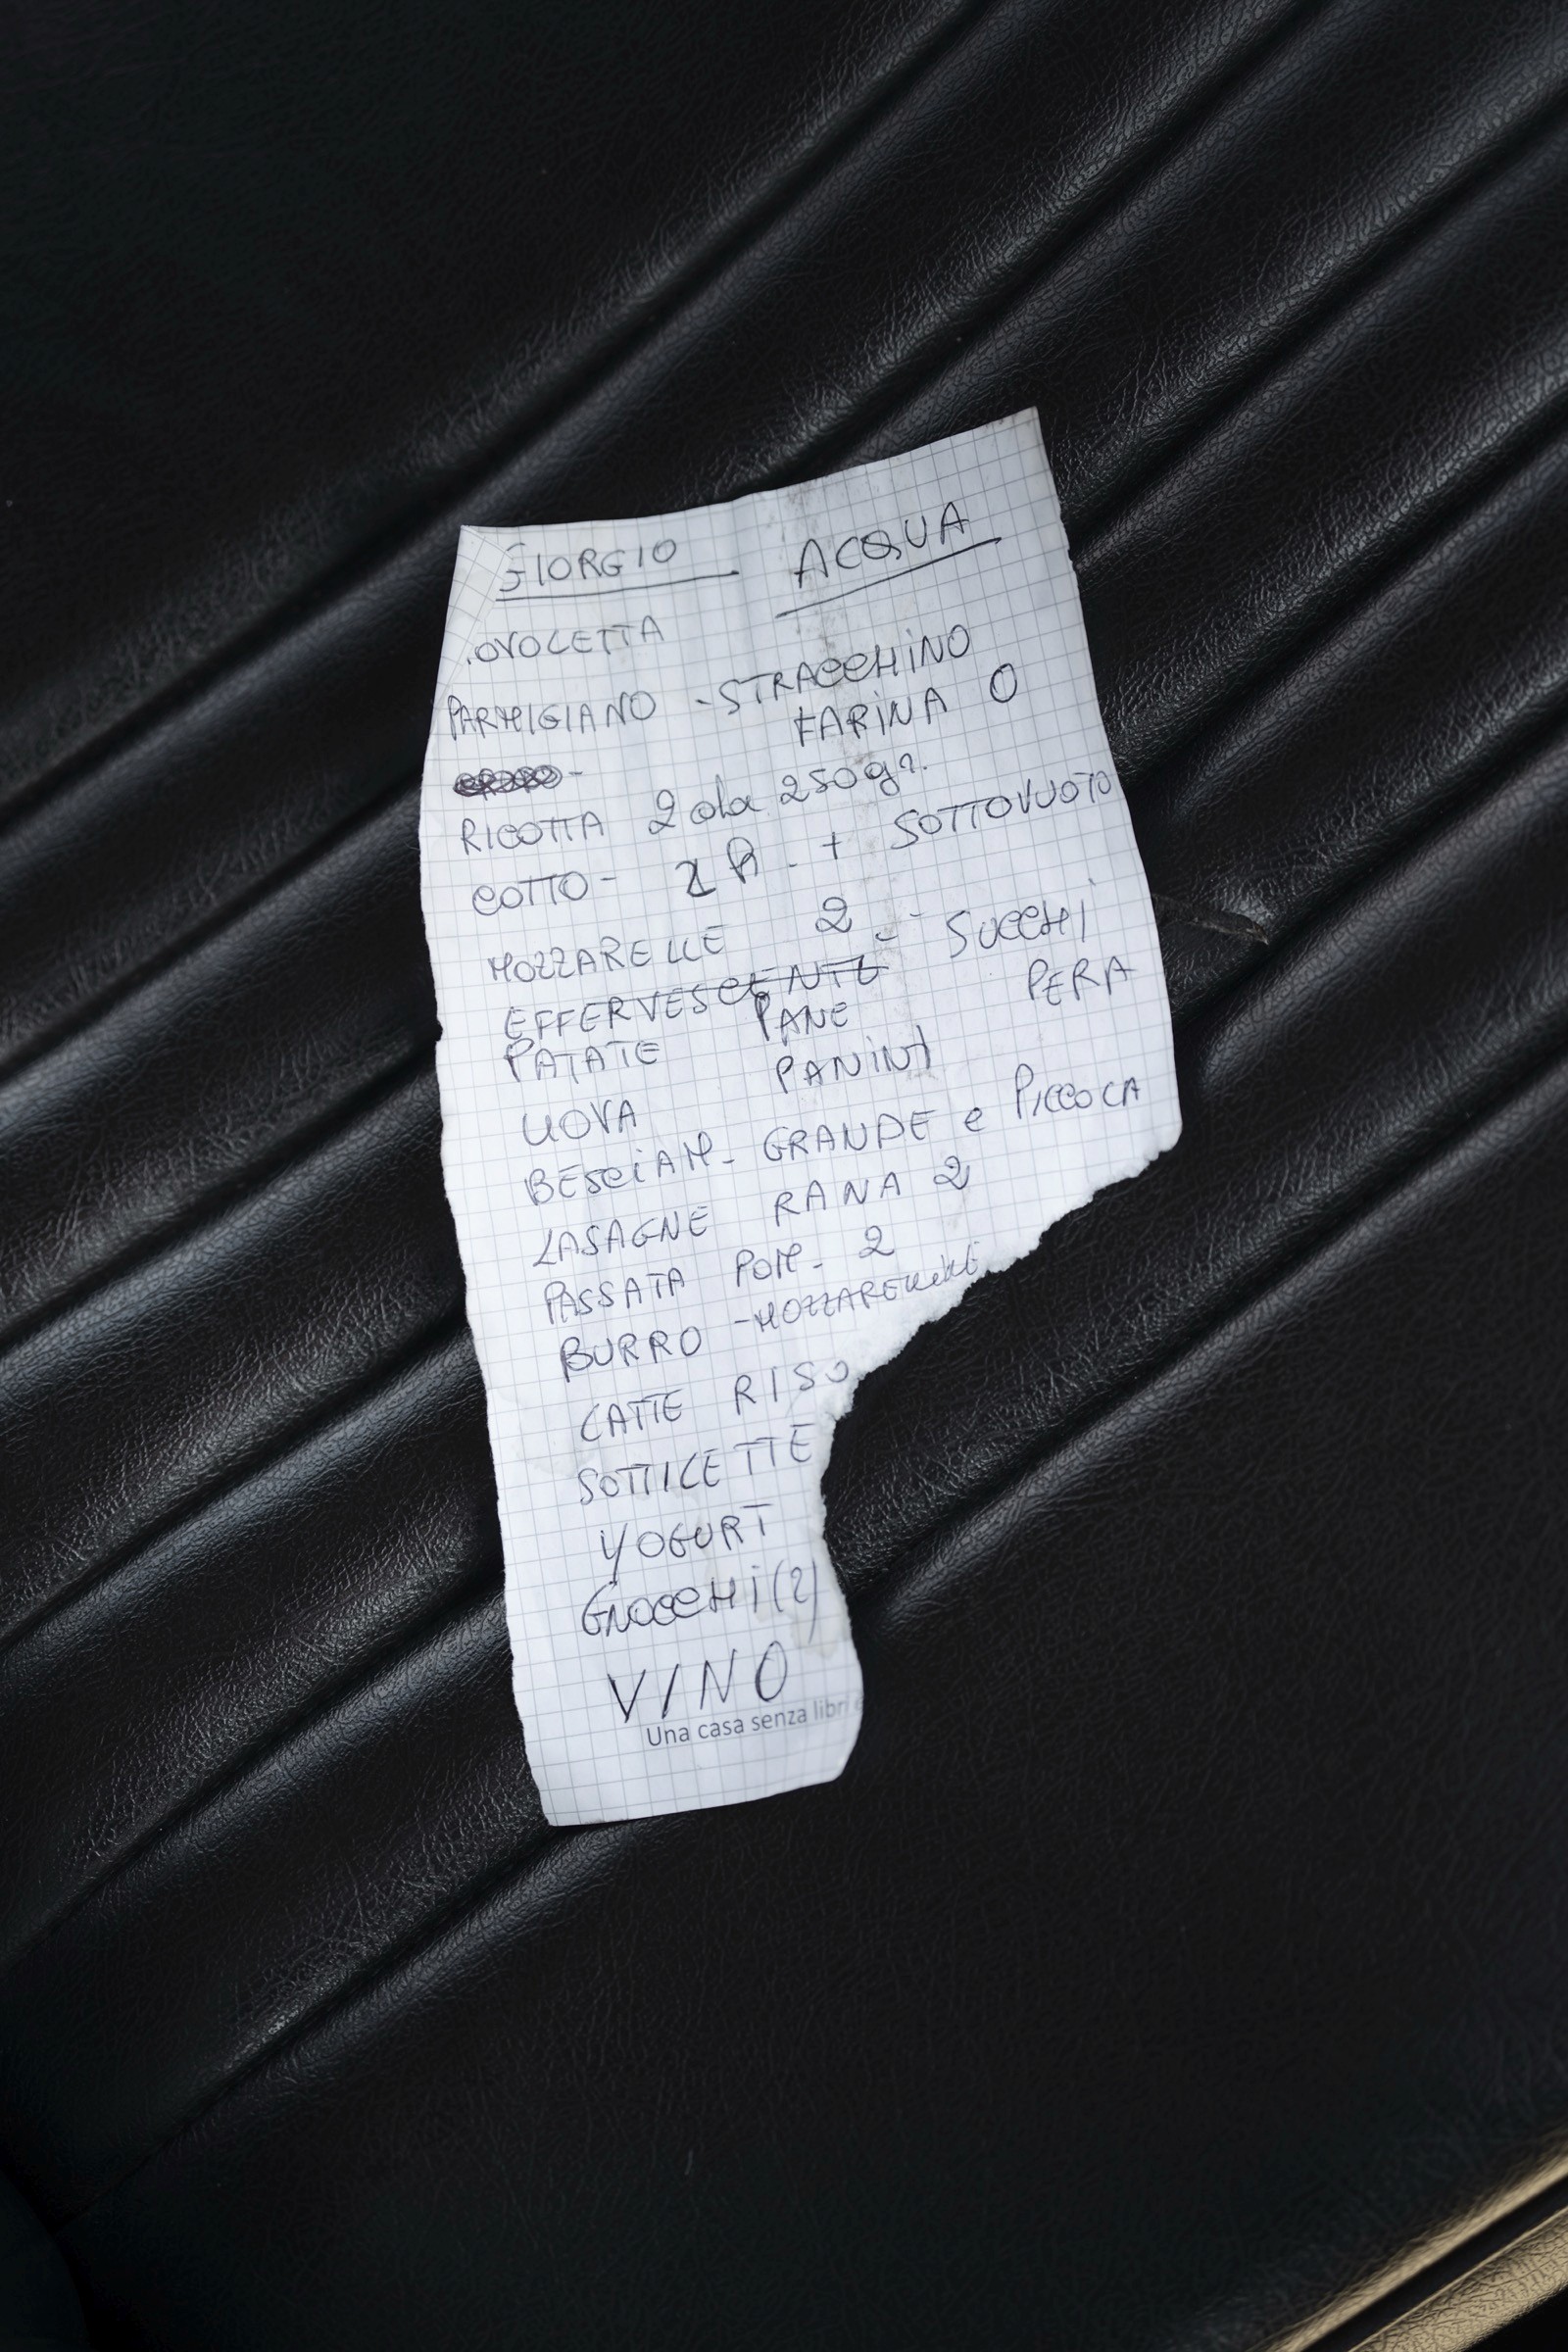 GIORGIO ACQUA
.OVOLETTA
PARMIGIANO - STRACCHINO
FARINA 0
RICOTTA 2 da 250gr.
COTTO - - + SOTTOVUOTO
MOZZARELLE 2 - SUCCHI
EFFERVESCENTE PERA
PATATE PANE
PANINI
UOVA
BESCIAM- GRANDE e PICCOLA
LASAGNE RANA 2
PASSATA POM- 2
BURRO - MOZZARELLINE
LATTE RISO
SOTTILETTE
YOGURT
GNOCCHI (2)
VINO
Una casa senza libri